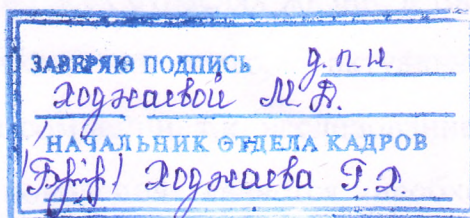 ЗАВЕРЯЮ ПОДПИСЬ д.п.н.
Ходжаевой М.Д.
НАЧАЛЬНИК ОТДЕЛА КАДРОВ
Ходжаева Г.Х.